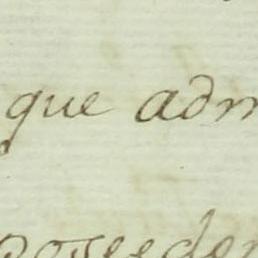 que adm
poseedor